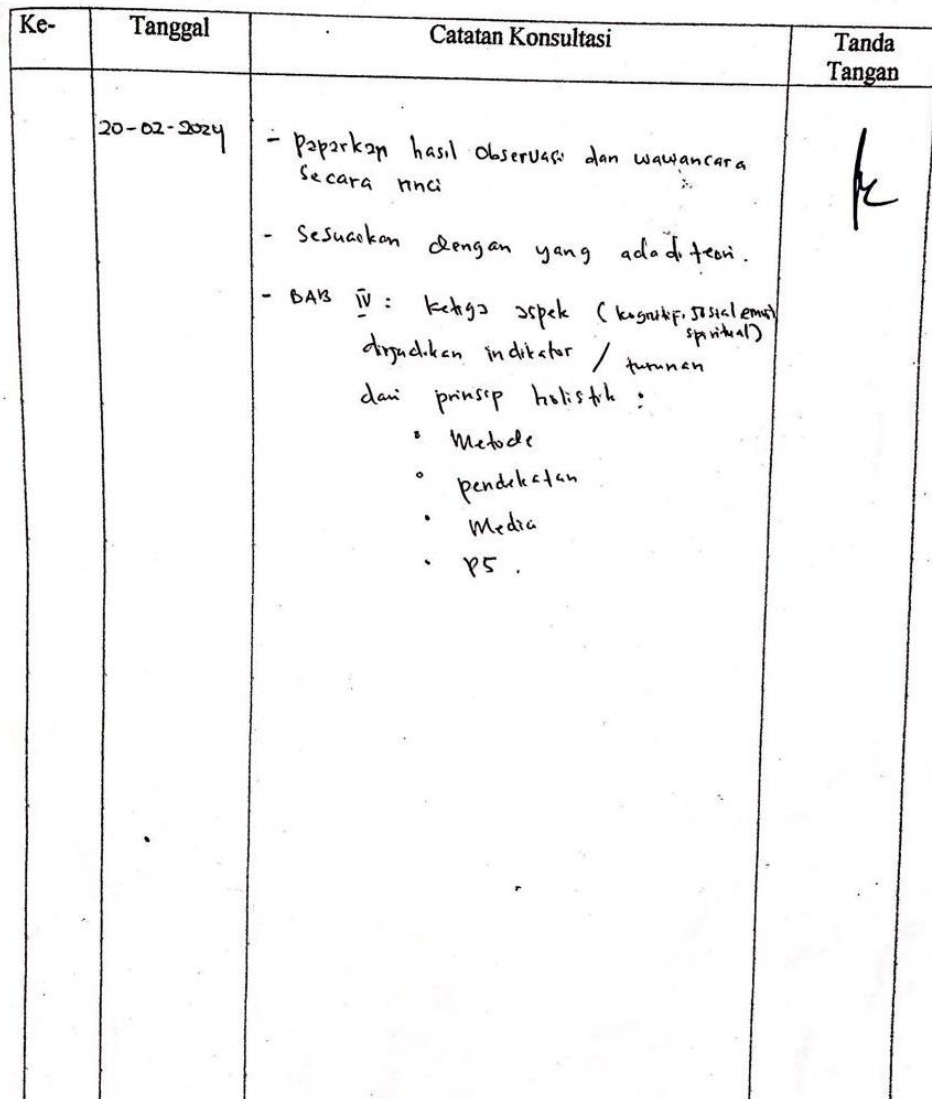 Ke- Tanggal Catatan Konsultasi Tanda
Tangan
20-02-2024 - Paparkan hasil observasi dan wawancara
secara rinci
- Sesuaikan dengan yang ada di teori.
- BAB IV : ketiga aspek (kognitif, sosial emosi
spiritual)
dijadikan indikator / turunan
dari prinsip holistik :
• Metode
• pendekatan
• Media
• P5 .